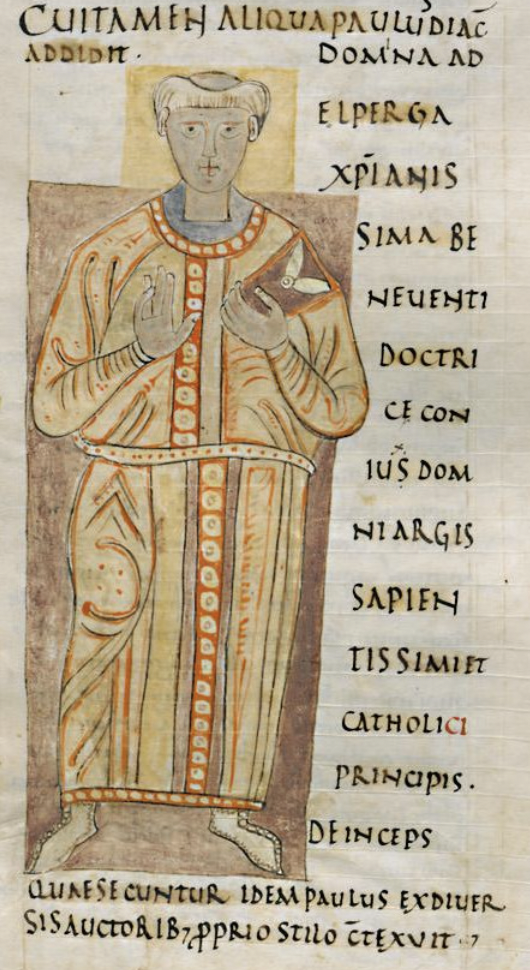 CUITAMEN ALIQUA PAULUS DIAC̄
ADDIDIT · DOMNA AD
ELPERGA
XP̄IANIS
SIMA BE
NEUENTI
DOCTRI
CE CON
IUS DOM
NI ARGIS
SAPIEN
TISSIMI ET
CATHOLICI
PRINCIPIS.
DEINCEPS
QUAE SECUNTUR IDEM PAULUS EX DIUER
SIS AUCTORIB; ꝓPRIO STILO C̄TEXUIT